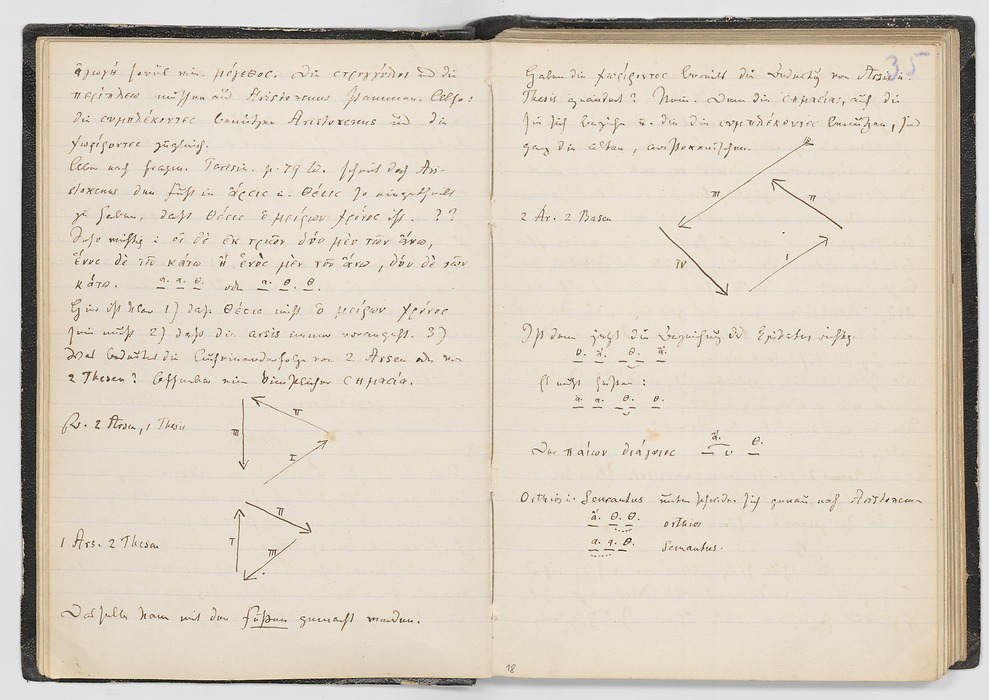 ἀγωγή sowie ein μέγεθος. Die στρογγύλοι und die
περίπλεω müssen aus Aristoxenus stammen. Also:
die συμπλέκοντες benützen Aristoxenus und die
χωρίζοντες zugleich.
Aber nach fragm. Parisin. p. 79 W. scheint doch Ari-
stoxenus den Fuß in ἄρσις u. θέσις so eingetheilt
zu haben, daß θέσις ὁ μείζων χρόνος ist. ??
Sehr wichtig: οἱ δὲ ἐκ τριῶν δύο μὲν τῶν ἄνω,
ἑνὸς δὲ τοῦ κάτω ἢ ἑνὸς μὲν τοῦ ἄνω, δύο δὲ τῶν
κάτω. a. a. θ. oder a. θ. θ.
Hier ist klar 1) daß θέσις nicht ὁ μείζων χρόνος
sein muß 2) daß die arsis immer vorangeht. 3)
Was bedeutet die Aufeinanderfolge von 2 Arsen oder von
2 Thesen? Offenbar eine σημασία.
2 Arsen, 1 Thesis
III
II
I
1 Ars. 2 Thesen
I
II
III
Dasselbe kann mit den Füßen gemacht werden.
35
Haben die χωρίζοντες bereits die von Arsis u.
Thesis geändert? Nein. Denn die σημασίαι, auf die
sie sich beziehn u. die die συμπλέκοντες benützen, sind
ganz die alten, aristoxenischen.
2 Ar. 2 Basen
III
II
IV
I
Ist denn jetzt die Bezeichnung des Epibatus richtig.
θ. ἀ. θ. ἀ.
Es muß heißen:
a. a. θ. θ.
Der παίων διάγυιος ἀ. θ.
Orthios u. Semantus unterscheiden sich genau nach Aristoxenus
ἀ. θ. θ. orthios
a. a. θ. Semantus.
18